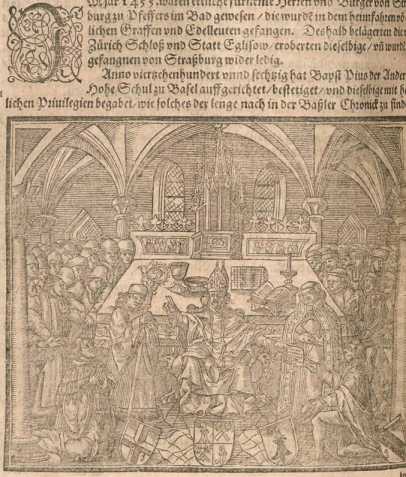 Im Jar 1455. waren etliche fürneme Herren und Burger von Str
burg zu Pfeffers im Bad gewesen / die wurdē in dem heimfahren vō
lichen Graffen und Edelleuten gefangen. Deshalb belägerten die v
Zürich Schloß und Statt Eglisow / eroberten dieselbige / uñ wurdē
gefangnen von Straßburg wider ledig.
Anno vierzehenhundert unnd sechtzig hat Bapst Pius der Ander
Hohe Schul zu Basel auffgerichtet / bestetiget / und dieselbig mit he
lichen Privilegien begabet / wie solches der lenge nach in der Baßler Chronick zu finde